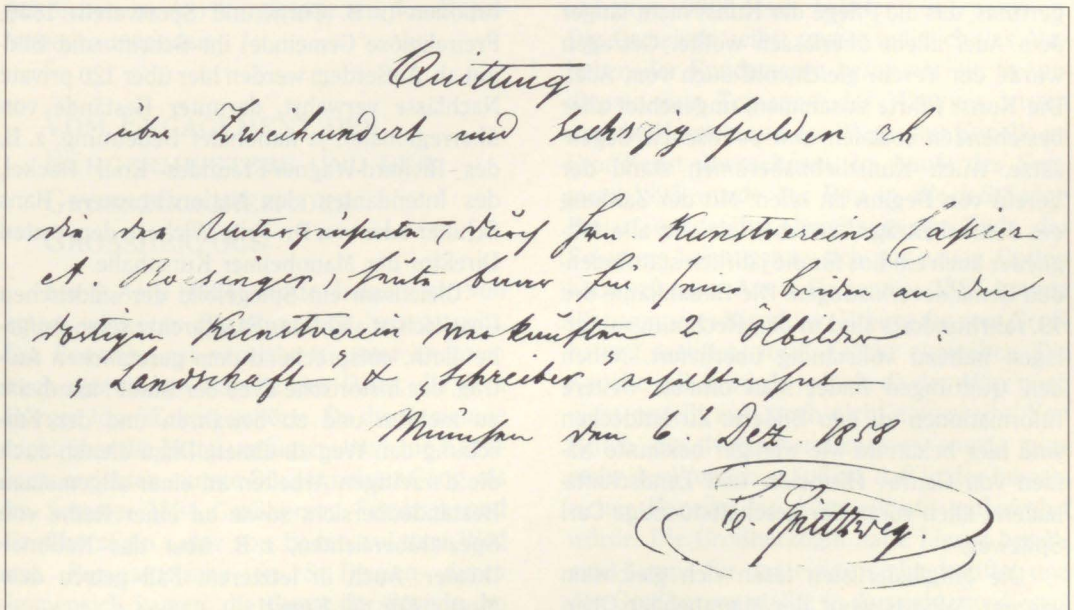 Quittung
über Zweihundert und sechszig Gulden rh
die der Unterzeichnete (durch Hrn Kunstvereins Cassier
heute baar für seine beiden an den
dortigen Kunstverein verkauften 2 Ölbilder:
„Landschaft" & Schreiber erhalten hat
München den 6' Dez. 1858
C. Spitzweg.